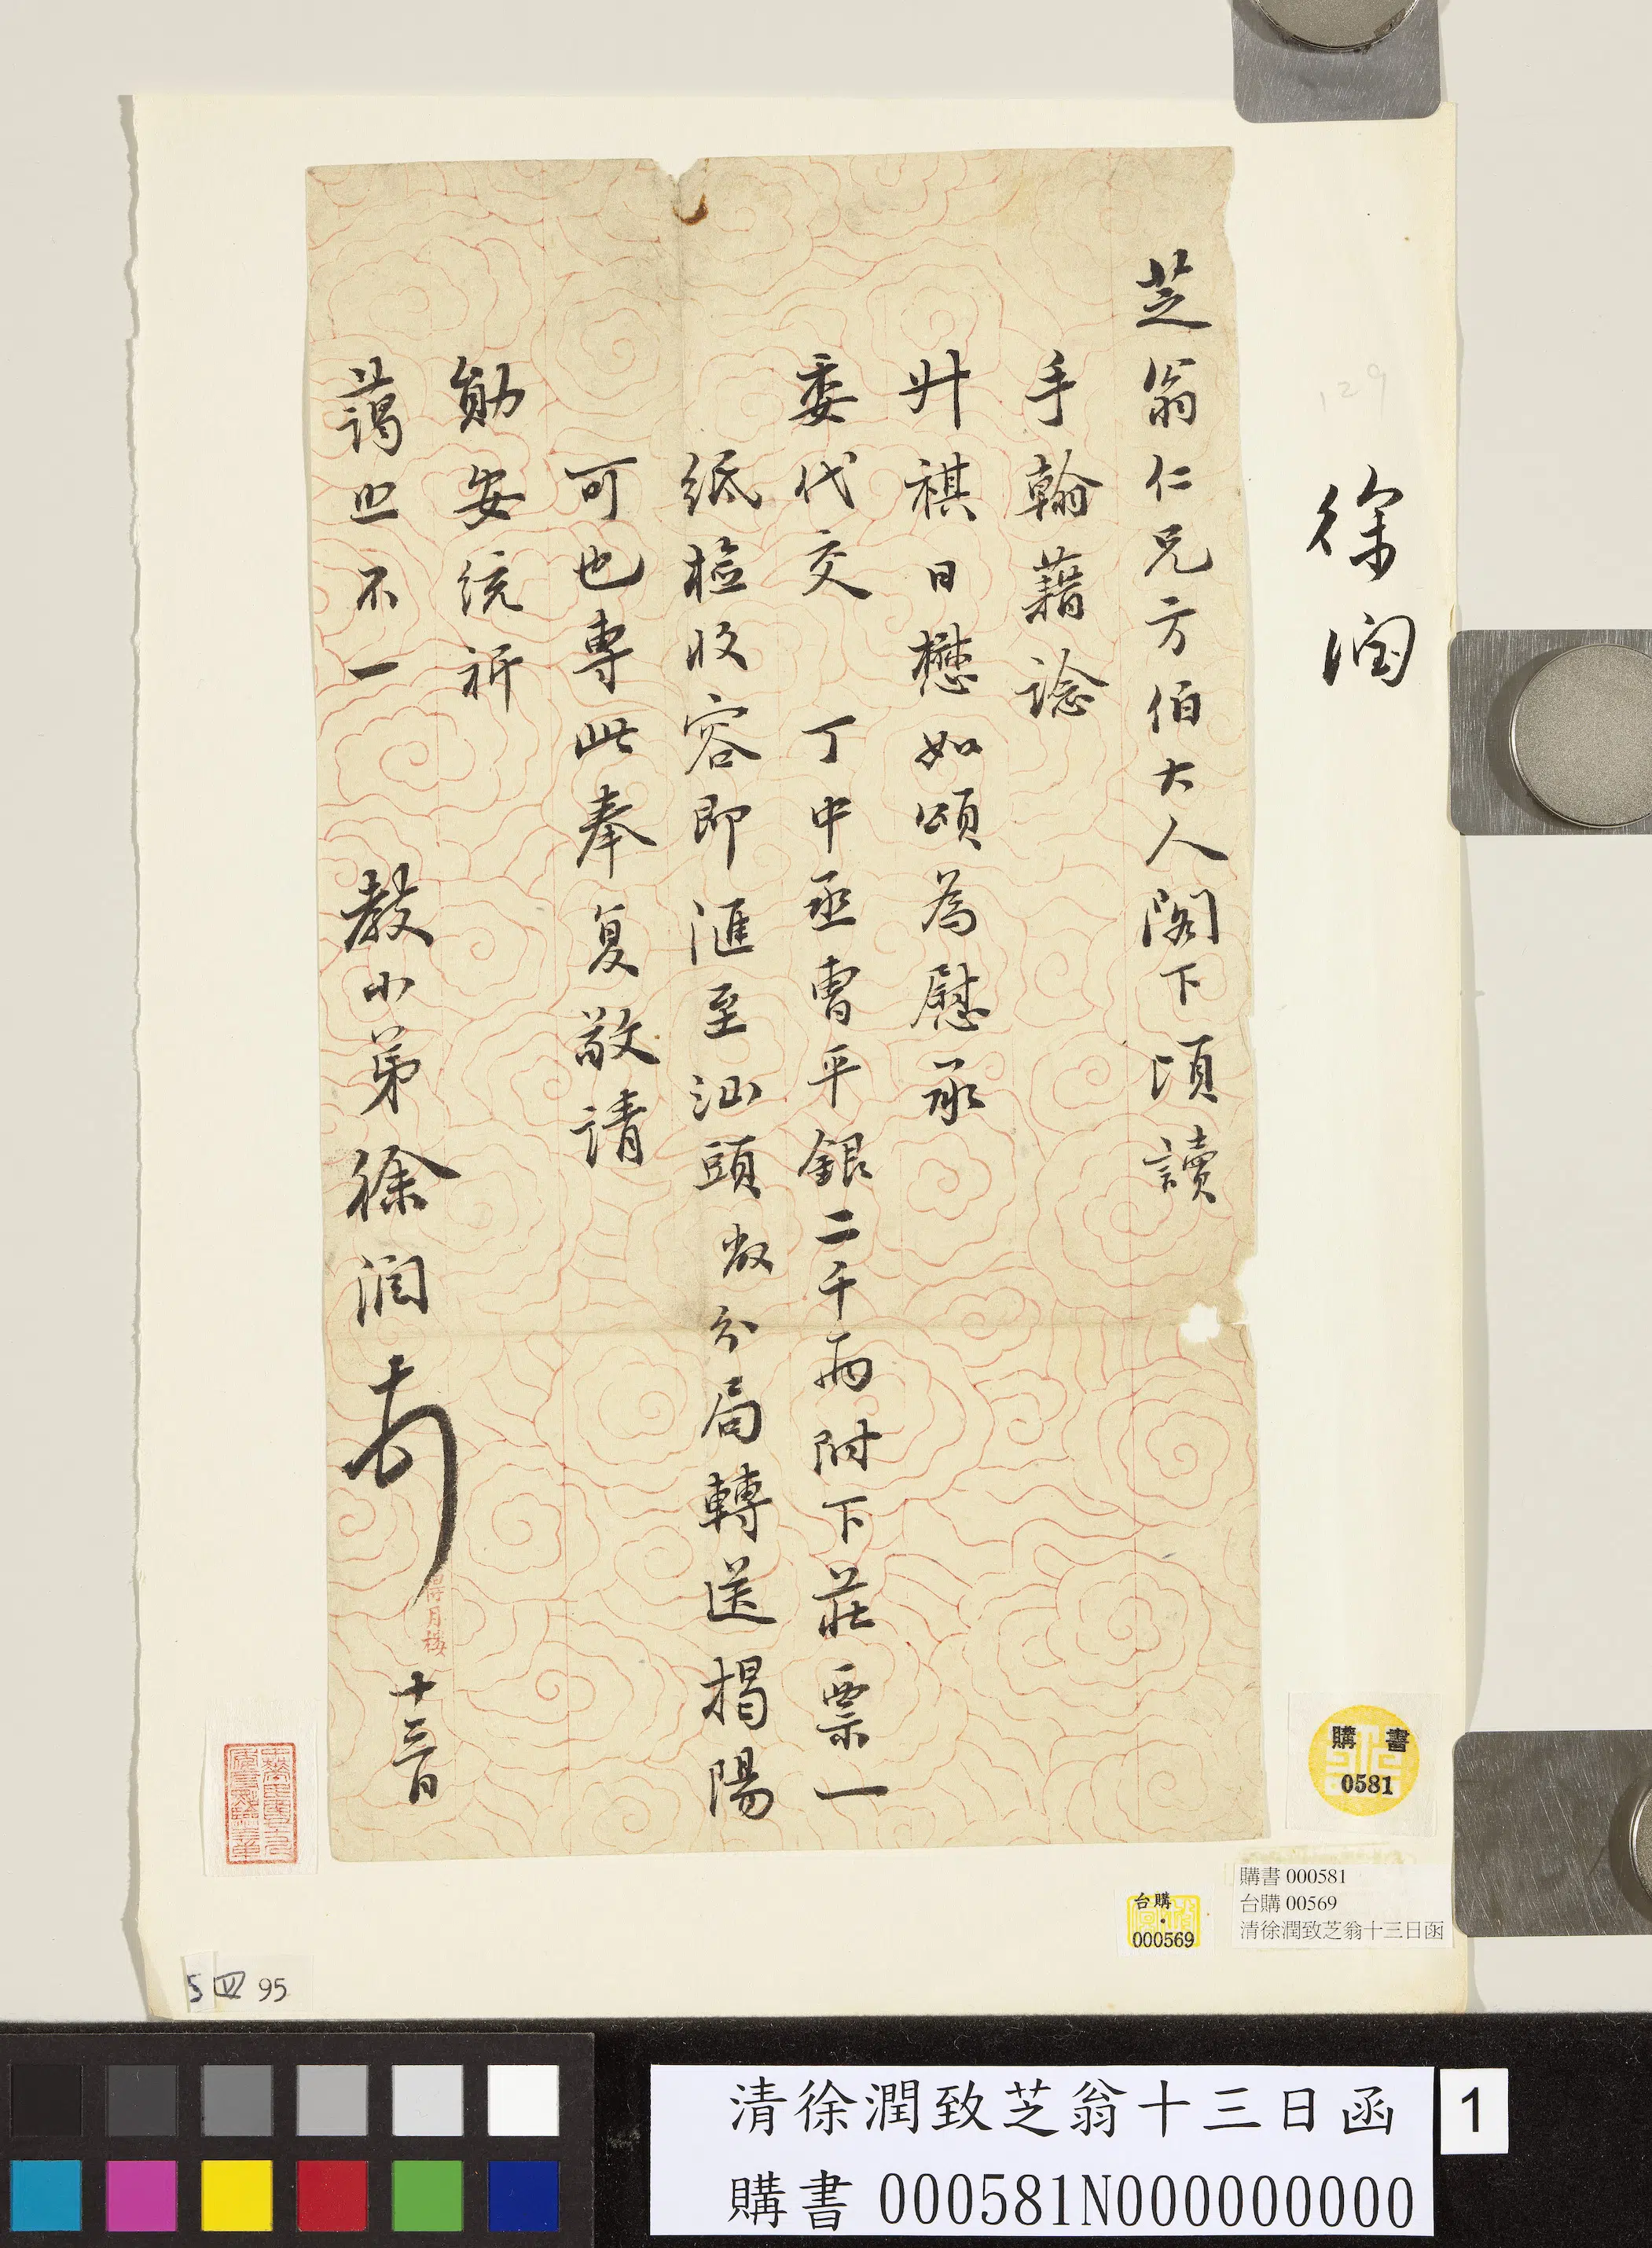 徐润
芝翁仁兄方伯大人閣下頃讀
手翰藉諗
升祺日懋如頌為慰承
委代交 丁中丞曹平銀二千兩附下莊票一
紙檢收容即滙至汕頭敝分局轉送揭陽
可也專此奉复敬請
勛安統祈
藹照不一 教小弟徐潤
得月樓
十三日
129
購書
0581
台購
000569
購書 000581
台購 00569
清徐潤致芝翁十三日函
5 IV 95
清徐潤致芝翁十三日函
購書 000581N000000000
1